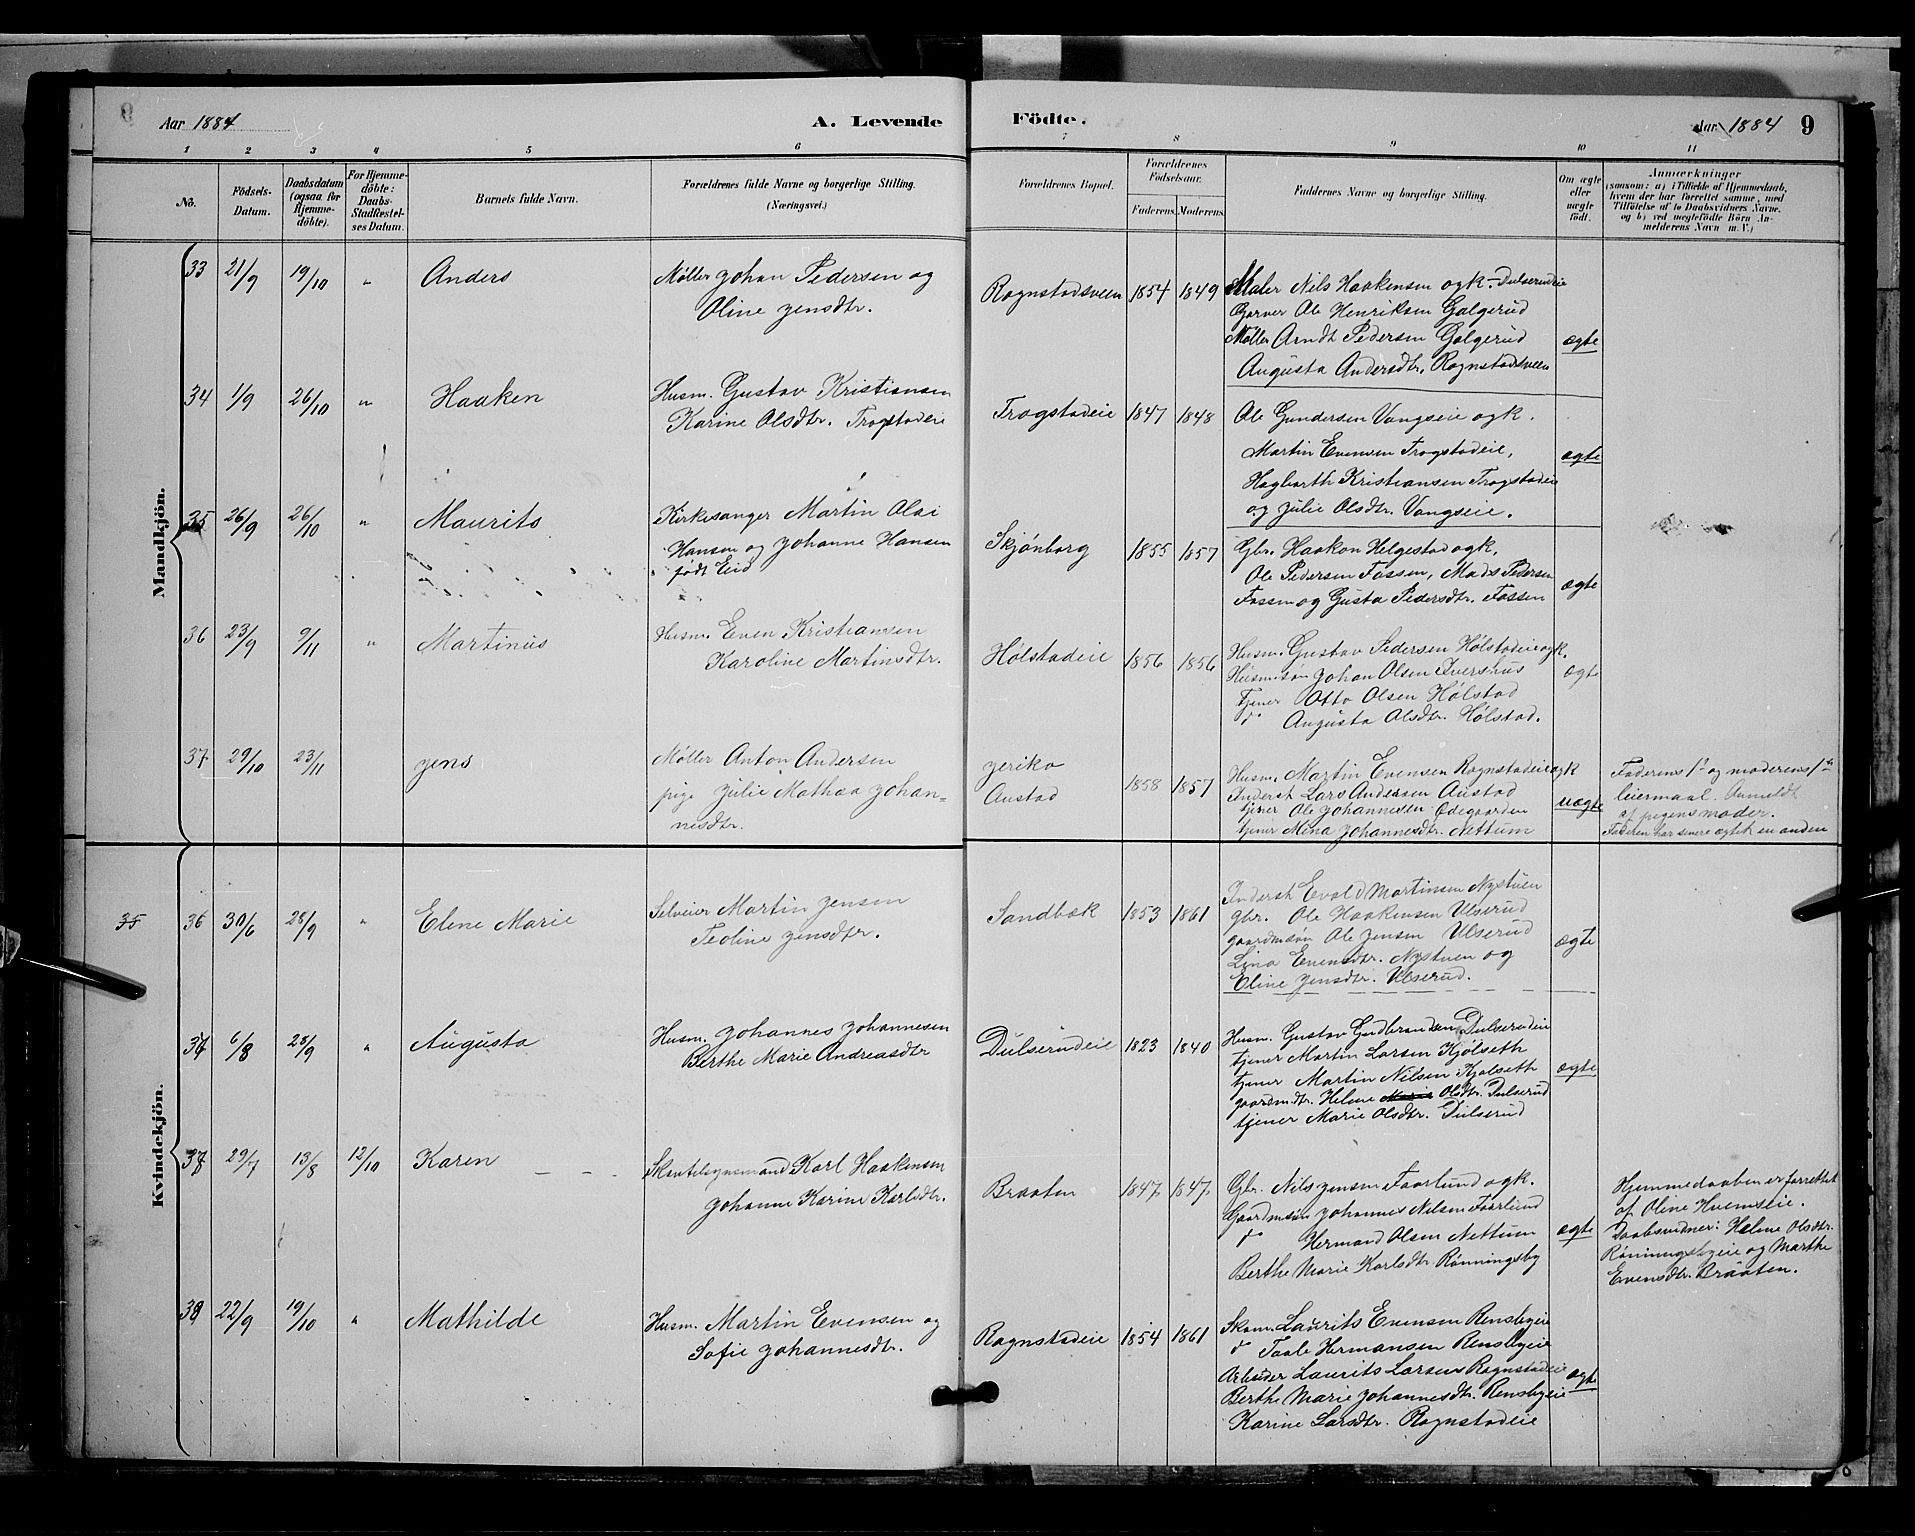 Aar 1884
A. Levende
Födte.
Aar 1884 9
1 2 3 4 5 6 7 8 9 10 11
No.
Födsels-
Datum.
Daabsdatum
(ogsaa for
Hjemme-
döbte).
For Hjemme-
döbte:
Daabs-
Stadfestel-
ses Datum.
Barnets fulde Navn.
Forældrenes fulde Navne og borgerlige Stilling.
(Næringsvei.)
Forældrenes Bopæl.
Forældrenes
Födselsaar.
Faderens. Moderens.
Faddernes Navne og borgerlige Stilling.
Om ægte
eller
uægte
født.
Anmærkninger
(saasom: a) i Tilfælde af Hjemmedaab,
hvem der har forrettet samme, med
Tilföielse af to Daabsvidners Navne,
og b) ved uægtefödte Börn An-
melderens Navn m. V.)
Mandkjön.
33 21/9 19/10 " Anders
Møller Johan Pedersen og
Oline Jensdtr.
Rognstadsveen 1854 1849
Maler Nils Haakensen ogk. Dulserudeie
Garver Ole Henriksen Galgerud
Møller Arndt Pedersen Galgerud
Augusta Andersdtr. Rognstadsveen
ægte
34 1/9 26/10 " Haaken
Husm. Gustav Kristiansen
Karine Olsdtr. Trogstadeie
Trogstadeie 1847 1848
Ole Gundersen Vangseie ogk.
Martin Evensen Trogstadeie,
Hagbarth Kristiansen Trogstadeie
og Julie Olsdtr. Vangseie.
ægte
35 26/9 26/10 " Maurits
Kirkesanger Martin Olai
Hansen og Johanne Hansen
født Eid
Skjønborg 1855 1857
Gbr. Haakon Helgestad ogk,
Ole Pedersen Fossen, Mads Pedersen
Fossen og Gusta Pedersdtr. Fossen
ægte
36 23/9 9/11 " Martinus
Husm. Even Kristiansen
Karoline Martinsdtr.
Hølstadeie 1856 1856
Husm. Gustav Pedersen Hølstadeie ogk.
Husmsøn Johan Olsen Ivershus
tjener Otto Olsen Hølstad
do Augusta Olsdtr. Hølstad.
ægte
37 29/10 23/11 Jens
Møller Anton Andersen
pige Julie Mathea Johan=
nesdtr.
Jeriko
Austad
1858 1857
Husm. Martin Evensen Rognstadeie ogk
Inderst Lars Andersen Austad
tjener Ole Johannesen Ødegaarden
tjener Mina Johannesdtr. Nettum
uægte
Faderens 1te og moderens 1te
leiermaal. Anmeldt
af pigens moder.
Faderen har senere ægtet en anden
Kvindekjön.
35 36 30/6 28/9 " Elene Marie
Selveier Martin Jensen
Teoline Jensdtr.
Sandbæk 1853 1861
Inderst Evald Martinsen Nystuen
gbr. Ole Haakensen Ulserud
gaardmsøn Ole Jensen Ulserud
Lina Evensdtr. Nystuen og
Eline Jensdtr. Ulserud.
ægte
37 6/8 28/9 " Augusta
Husm. Johannes Johannesen
Berthe Marie Andreasdtr
Dulserudeie 1823 1840
Husm. Gustav Gudbrandsen Dulserudeie
tjener Martin Larsen Kjølseth
tjener Martin Nilsen Kjølseth
gaardm.dtr. Helene Marie Olsdtr. Dulserud
tjener Marie Olsdtr. Dulserud
ægte
38 29/7 13/8 12/10 Karen
Skovtilsynsmand Karl Haakensen
Johanne Karine Karlsdtr.
Braaten 1847 1847
Gbr. Nils Jensen Faarlund ogk.
Gaardmsøn Johannes Nilsen Faarlund
do Herman Olsen Nettum
Berthe Marie Karlsdtr. Rønningsby
ægte
Hjemmedaaben er forrettet
af Oline Huemseie.
Daabsvidner: Helene Olsdtr.
Rønningsbyeie og Marthe
Evensdtr. Braaten.
39 22/9 19/10 " Mathilde
Husm. Martin Evensen og
Sofie Johannesdtr.
Rognstadeie 1854 1861
Skom. Laurits Evensen Rensbyeie
do Taale Hermansen Rensbyeie
Arbeider Laurits Larsen Rognstadeie
Berthe Marie Johannesdtr. Rensbyeie
Karine Larsdtr. Rognstadeie
ægte